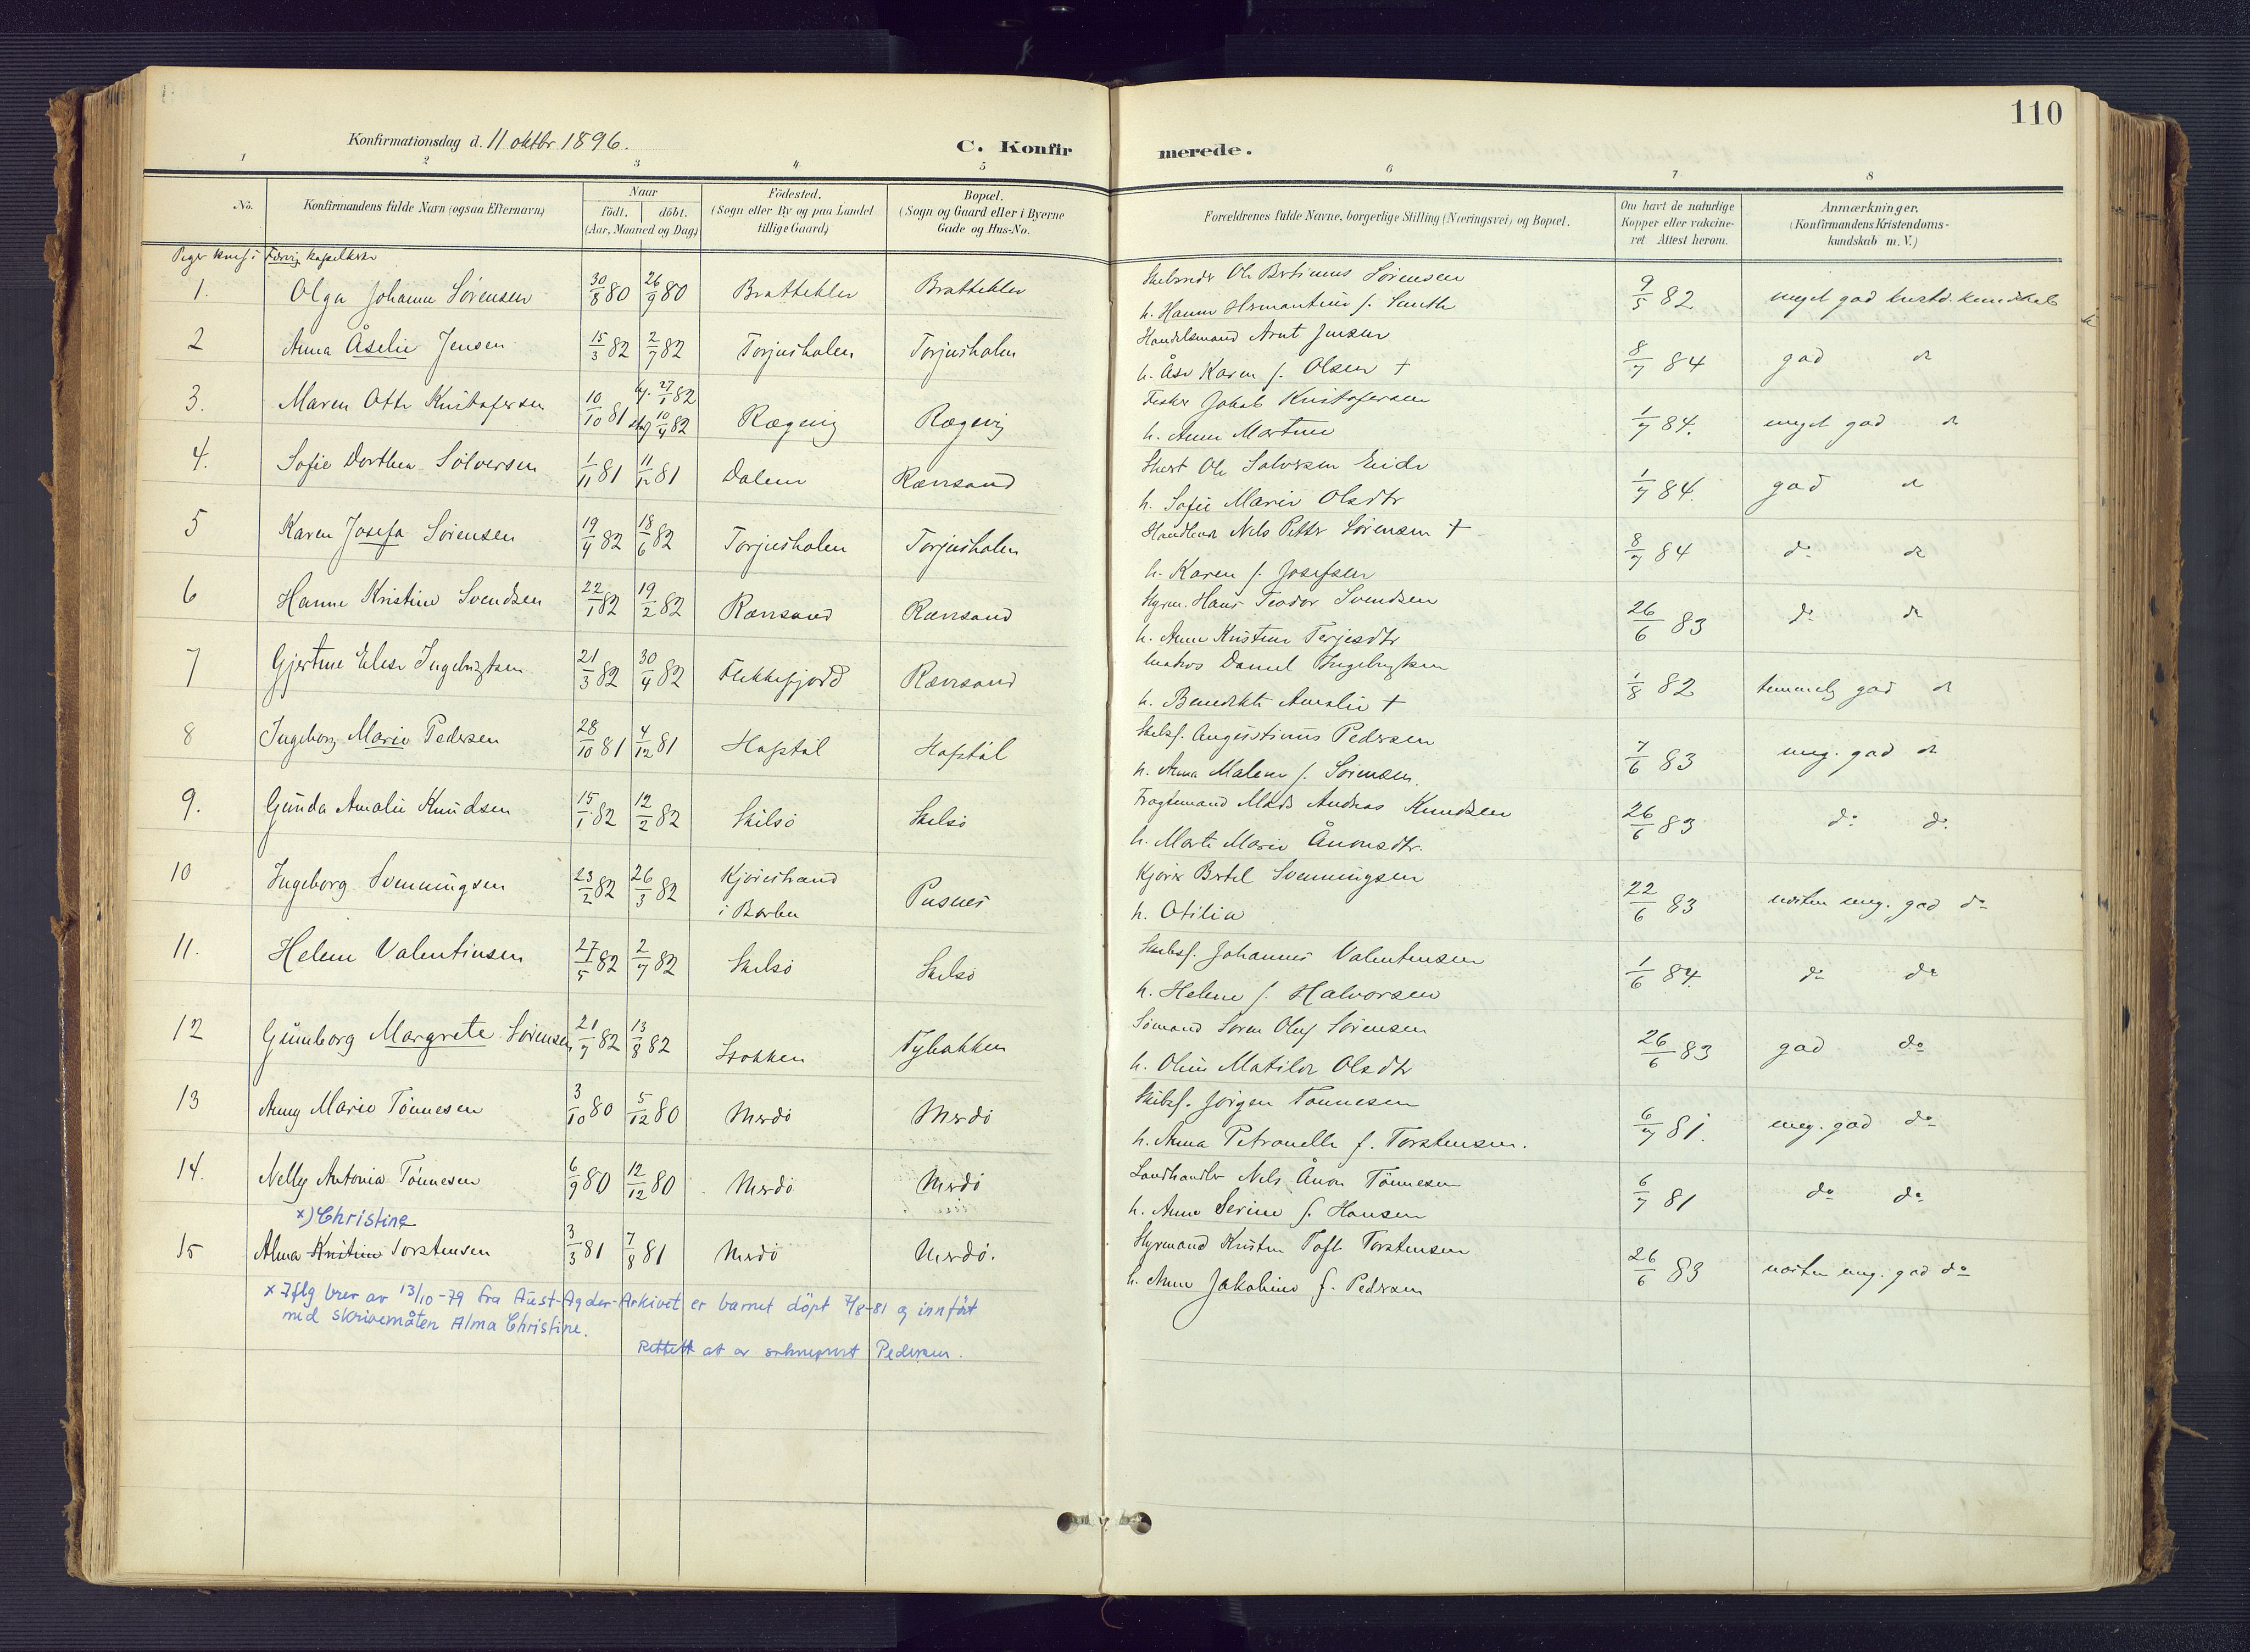 110
Konfirmationsdag d. 11 oktbr 1896.
C. Konfirmerede.
1 2 3 4 5 6 7 8
No.
Konfirmandens fulde Navn (ogsaa Efternavn)
Naar
födt. döbt.
(Aar, Maaned og Dag)
Födested.
(Sogn eller By og paa Landet
tillige Gaard)
Bopæl.
(Sogn og Gaard eller i Byerne
Gade og Hus-No.
Forældrenes fulde Navne, borgerlige Stilling (Næringsvei) og Bopæl.
Om havt de naturlige
Kopper eller vakcine-
ret Attest herom.
Anmærkninger.
(Konfirmandens Kristendoms-
kundskab m. V.)
Piger konf. i Færvig kapelkirke
1. Olga Johanne Sörensen 30/8 80 26/9 80 Brattekler Brattekler
Skibsreder Ole Bertinius Sörensen
h. Hanne Hermantine f. Smith
9/5 82 meget god kristd. kundskab
2 Anna Åselie Jensen 15/3 82 2/7 82 Torjusholen Torjusholen
Handelsmand Arnt Jensen
h. Åse Karen f. Olsen †
8/7 84 god do
3. Maren Otte Kristofersen 10/10 81 hj. 27/1 82 10/4 82 Rægevig Rægevig
Fisker Jakob Kristofersen
h. Anne Martine
1/7 84. meget god do
4. Sofie Dorthea Sölversen 1/11 81 11/12 81 Dalene Rævesand
Ole Salvesen Eide
h. Sofie Marie Olsdtr
1/7 84. god do
5 Karen Josefa Sörensen 19/4 82 18/6 82 Torjusholen Torjusholen
Handlende Nils Petter Sörensen †
h. Karen f. Josefsen
8/7 84 do do
6 Hanne Kristine Svendsen 22/1 82 19/2 82 Rævesand Rævesand
Styrm. Hans Teodor Svendsen
h. Anne Kristine Terjesdtr
26/6 83 do do
7 Gjertine Elise Ingebrigtsen 21/3 82 30/4 82 Flekkefjord Rævesand
Matros Daniel Ingebrigtsen
h. Benedikte Amalie †
1/8 82 temmelig god do
8 Ingeborg Marie Pedersen 28/10 81 4/12 81 Hofstöl Hofstöl
Skibsf. Augustinus Pedersen
h. Anna Malene f. Sörensen.
7/6 83 meg. god do
9. Gunda Amalie Knudsen 15/1 82 12/2 82 Skilsö Skilsö
Fragtemand Mads Andreas Knudsen
h. Marte Marie Ånonsdtr.
26/6 83 do do
10 Ingeborg Svenningsen 23/2 82 26/3 82 Kjörestrand
i Barbu Pusnes
Kjörer Bertel Svenningsen
h. Otilie
22/6 83 næsten meg. god do
11. Helene Valentinsen 27/5 82 2/7 82 Skilsö Skilsö
Skibsf. Johannes Valentinsen
h. Helene f. Halvorsen
1/6 84. do do
12 Gunnborg Margrete Sörensen 21/7 82 13/8 82 Stokken Tybakken
Sömand Sören Oluf Sörensen
h. Oline Matilde Olsdtr
26/6 83 god do
13 Anny Marie Tönnesen 3/10 80 5/12 80 Merdö Merdö
Skibsf. Jörgen Tönnesen
h. Anna Petronelle f. Torstensen.
6/7 81. meg. god do
14. Nelly Antonia Tönnesen 6/9 80 12/12 80 Merdö Merdö
Landhandler Nils Ånon Tönnesen
h. Anne Serine f. Hansen
6/7 81 do do
x) Christine
15 Alma Kristine Torstensen 3/3 81 7/8 81 Merdö Merdö.
Styrmand Kristen Toft Torstensen
h. Anne Jakobine f. Pedersen
26/6 83 næsten meg. god do
x Iflg brev av 13/10-79 fra Aust-Agder-Arkivet er barnet döpt 7/8-81 og innfört
med skrivemåten Alma Christine.
Rettet at av sokneprest Pedersen.